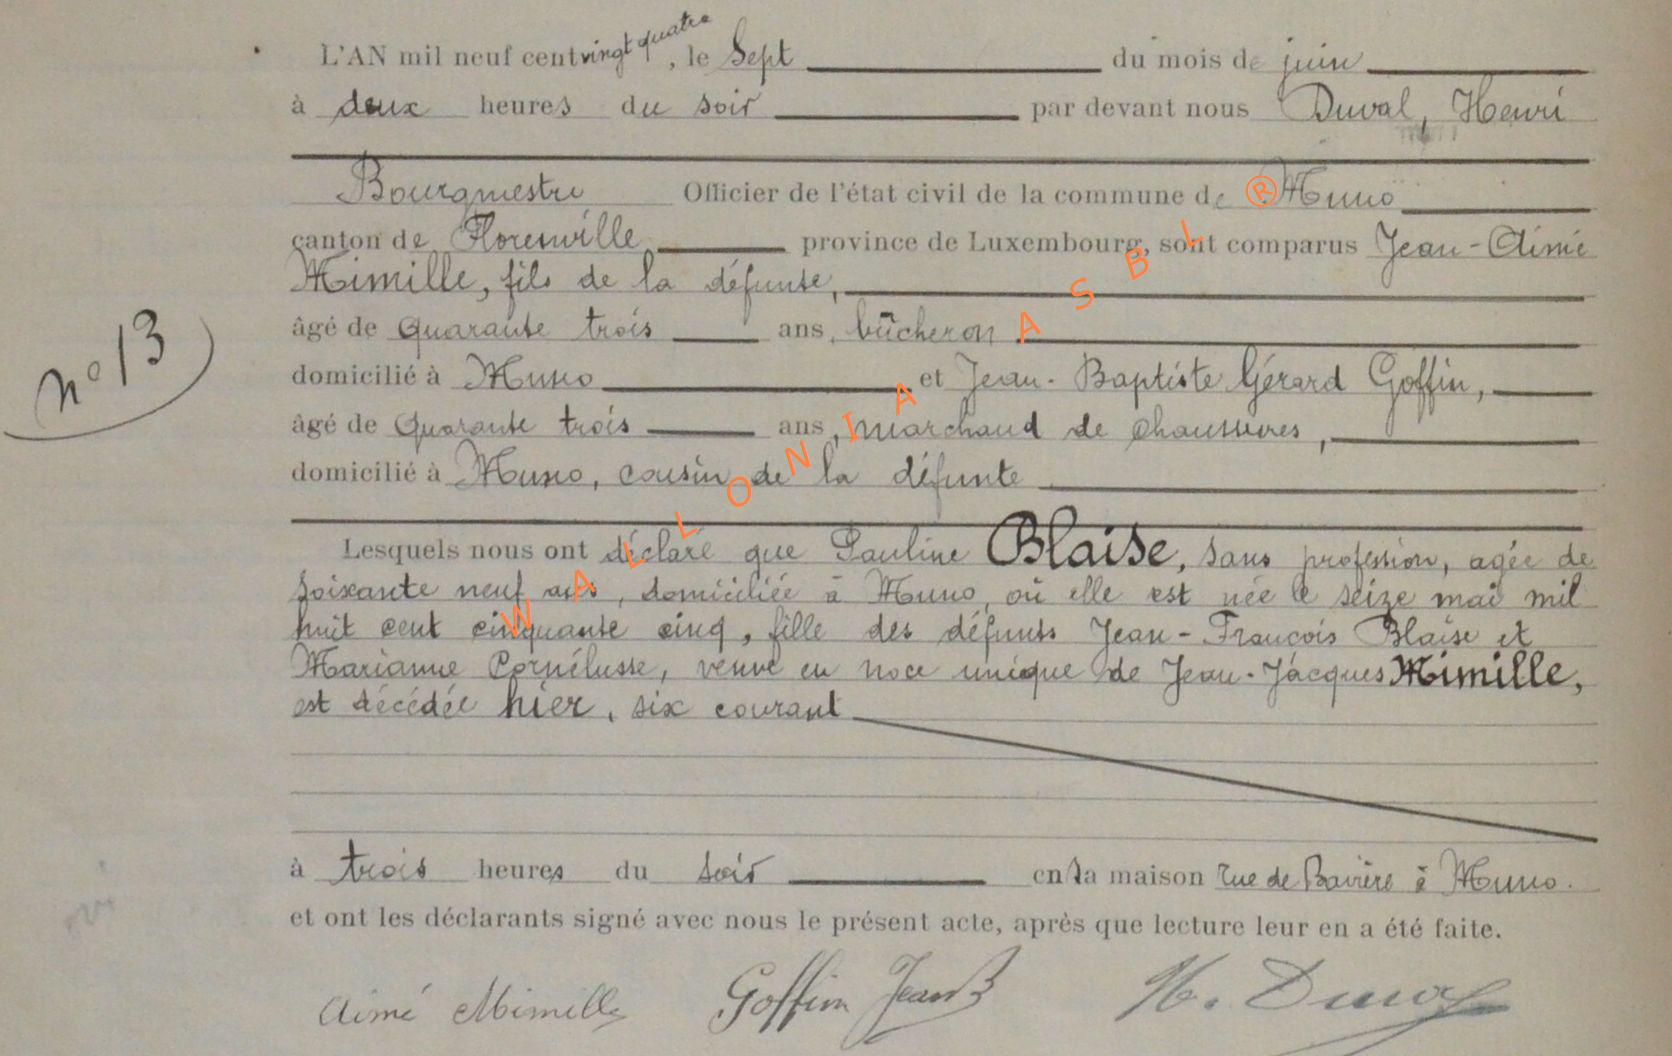 L'AN mil neuf cent vingt quatre, le Sept du mois de juin
à deux heures du soir par devant nous Duval, Henri
Bourgmestre Officier de l'état civil de la commune de Muno
canton de Florenville province de Luxembourg, sont comparus Jean-Aimé
Mimille, fils de la défunte,
âgé de Quarante trois ans, bûcheron
nº 13
domicilié à Muno et Jean-Baptiste Gérard Goffin,
âgé de Quarante trois ans, marchand de chaussures,
domicilié à Muno, cousin de la défunte
Lesquels nous ont déclaré que Pauline Blaise, sans profession, agée de
soixante neuf ans, domiciliée à Muno, où elle est née le seize mai mil
huit cent cinquante cinq, fille des défunts Jean-François Blaise et
Marianne Cornélusse, veuve en noce unique de Jean-Jacques Mimille,
est décédée hier, six courant
à trois heures du soir en sa maison rue de Bavière à Muno.
et ont les déclarants signé avec nous le présent acte, après que lecture leur en a été faite.
Aimé Mimille Goffin Jean B H. Duval
WALLONIA ASBL ®